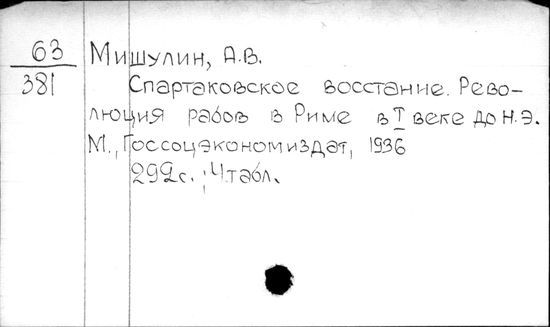 63 Мишулин, А.В.
381 Спартаковское восстание. Рево-
люция рабов в Риме в I веке до н.э.
М., Госсоцэкономиздат, 1936
292с.; 4табл.